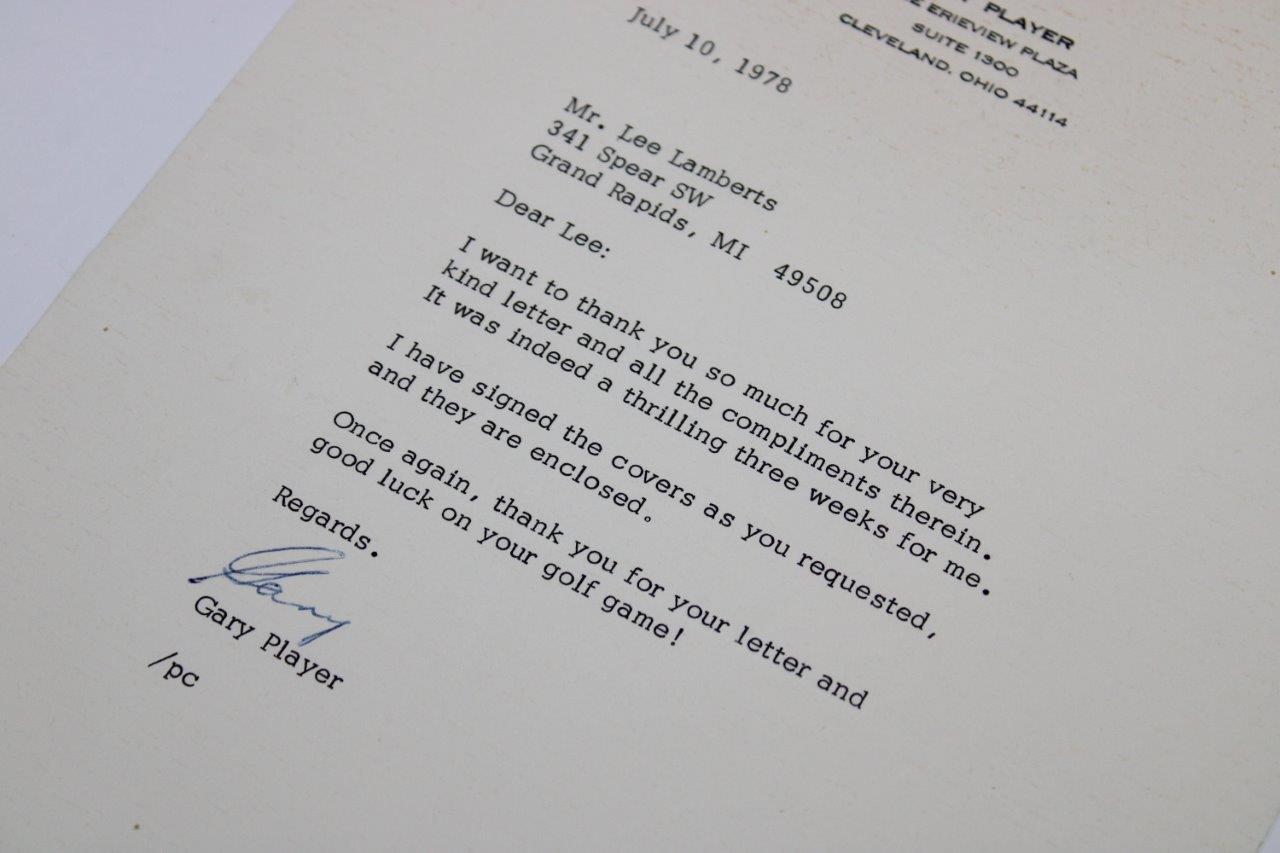 PLAYER
ERIEVIEW PLAZA
SUITE 1300
CLEVELAND, OHIO 44114
July 10, 1978
Mr. Lee Lamberts
341 Spear SW
Grand Rapids, MI 49508
Dear Lee:
I want to thank you so much for your very
kind letter and all the compliments therein.
It was indeed a thrilling three weeks for me.
I have signed the covers as you requested,
and they are enclosed.
Once again, thank you for your letter and
good luck on your golf game!
Regards.
Gary
Gary Player
/pc